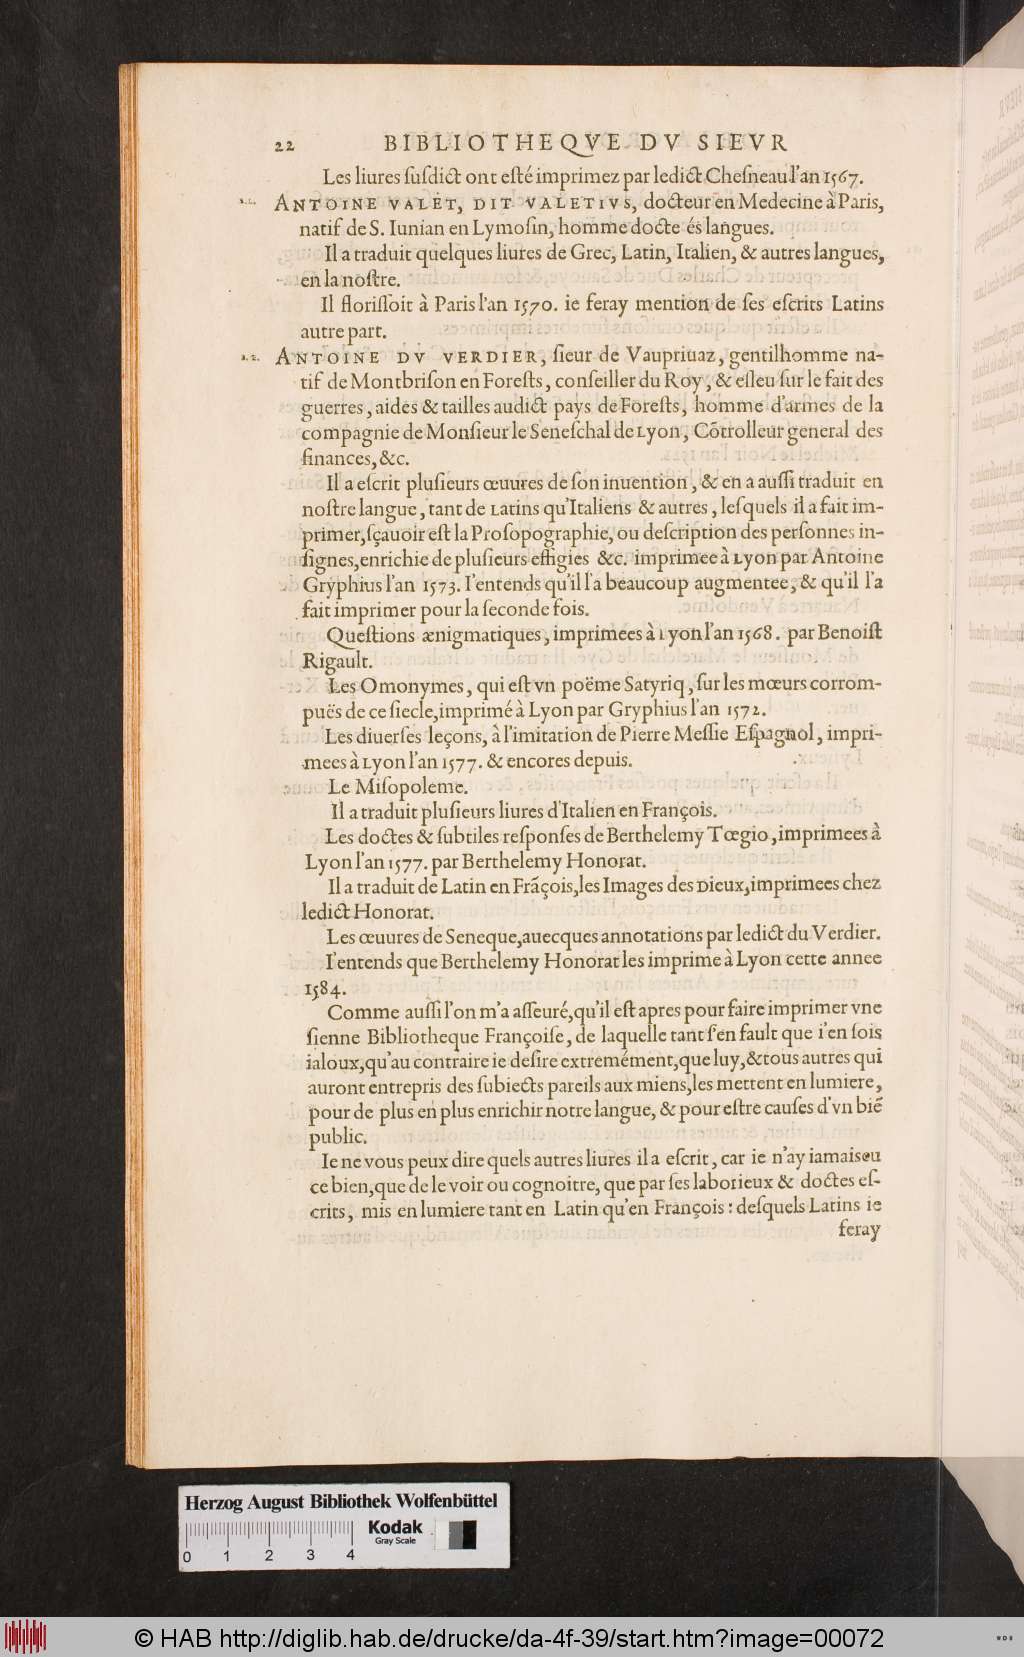 22 BIBLIOTHEQVE DV SIEVR
Les liures ſuſdict ont eſté imprimez par ledict Cheſneau l'an 1567.
ANTOINE VALET, DIT VALETIVS, docteur en Medecine à Paris,
natif de S. Iunian en Lymoſin, homme docte és langues.
Il a traduit quelques liures de Grec, Latin, Italien, & autres langues,
en la noſtre.
Il floriſſoit à Paris l'an 1570. ie feray mention de ſes eſcrits Latins
autre part.
ANTOINE DV VERDIER, ſieur de Vaupriuaz, gentilhomme na-
tif de Montbriſon en Foreſts, conſeiller du Roy, & eſleu ſur le fait des
guerres, aides & tailles audict pays de Foreſts, homme d'armes de la
compagnie de Monſieur le Seneſchal de Lyon, Cõtrolleur general des
finances, &c.
Il a eſcrit pluſieurs œuures de ſon inuention, & en a auſſi traduit en
noſtre langue, tant de Latins qu'Italiens & autres, leſquels il a fait im-
primer, ſçauoir eſt la Proſopographie, ou deſcription des perſonnes in-
ſignes, enrichie de pluſieurs effigies &c. imprimee à Lyon par Antoine
Gryphius l'an 1573. I'entends qu'il l'a beaucoup augmentee, & qu'il l'a
fait imprimer pour la ſeconde fois.
Queſtions ænigmatiques, imprimees à Lyon l'an 1568. par Benoiſt
Rigault.
Les Omonymes, qui eſt vn poëme Satyriq, ſur les mœurs corrom-
puës de ce ſiecle, imprimé à Lyon par Gryphius l'an 1572.
Les diuerſes leçons, à l'imitation de Pierre Meſſie Eſpagnol, impri-
mees à Lyon l'an 1577. & encores depuis.
Le Miſopoleme.
Il a traduit pluſieurs liures d'Italien en François.
Les doctes & ſubtiles reſponſes de Berthelemy Tœgio, imprimees à
Lyon l'an 1577. par Berthelemy Honorat.
Il a traduit de Latin en Frãçois, les Images des Dieux, imprimees chez
ledict Honorat.
Les œuures de Seneque, auecques annotations par ledict du Verdier.
I'entends que Berthelemy Honorat les imprime à Lyon cette annee
1584.
Comme auſſi l'on m'a aſſeuré, qu'il eſt apres pour faire imprimer vne
ſienne Bibliotheque Françoiſe, de laquelle tant ſ'en fault que i'en ſois
ialoux, qu'au contraire ie deſire extremément, que luy, & tous autres qui
auront entrepris des ſubiects pareils aux miens, les mettent en lumiere,
pour de plus en plus enrichir notre langue, & pour eſtre cauſes d'vn biẽ
public.
Ie ne vous peux dire quels autres liures il a eſcrit, car ie n'ay iamais eu
ce bien, que de le voir ou cognoitre, que par ſes laborieux & doctes eſ-
crits, mis en lumiere tant en Latin qu'en François: deſquels Latins ie
feray
Herzog August Bibliothek Wolfenbüttel
Kodak
Gray Scale
0 1 2 3 4
© HAB http://diglib.hab.de/drucke/da-4f-39/start.htm?image=00072